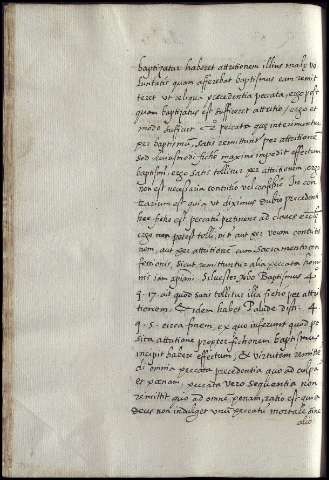 baptizatus haberet attritionem illius malæ vo
luntatis quam afferebat baptismus eam remit
teret ut reliqua præcedentia peccata, ergo post
quam baptizatus est sufficeret attritio, ergo et
modo sufficit peccata quæ interimuntur
per baptismū, satis remittunt per attritionē
sed huiusmodi fictio maxime impedit effectum
baptismi, ergo satis tollitur per attritionem, ergo
non est necessaria contritio vel confessio In con
trarium est quia ut diximus dubio præcedenti
hæc fictio est peccatū pertinens ad claves ecclesiæ
ergo non potest tolli, nisi aut per veram contritio
nem, aut per attritionē cum sacramento con
fessionis, sicut remittuntur alia peccata homi
ni iam Silvester, verbo Baptismus 4
q. 17. ait quod satis tollitur illa fictio per attri
tionem. & idem habet Palude dist. 4
q. 5. circa finem, ex quo inferunt quod po
sita attritione propter fictionem baptismus
incipit habere effectum, & virtutem remitten
di omnia peccata præcedentia quo ad culpā
et pœnam. peccata vero sequentia non
remittit quo ad omnē pœnam, ratio est quia
Deus non indulget unū peccatū mortale sine
alio